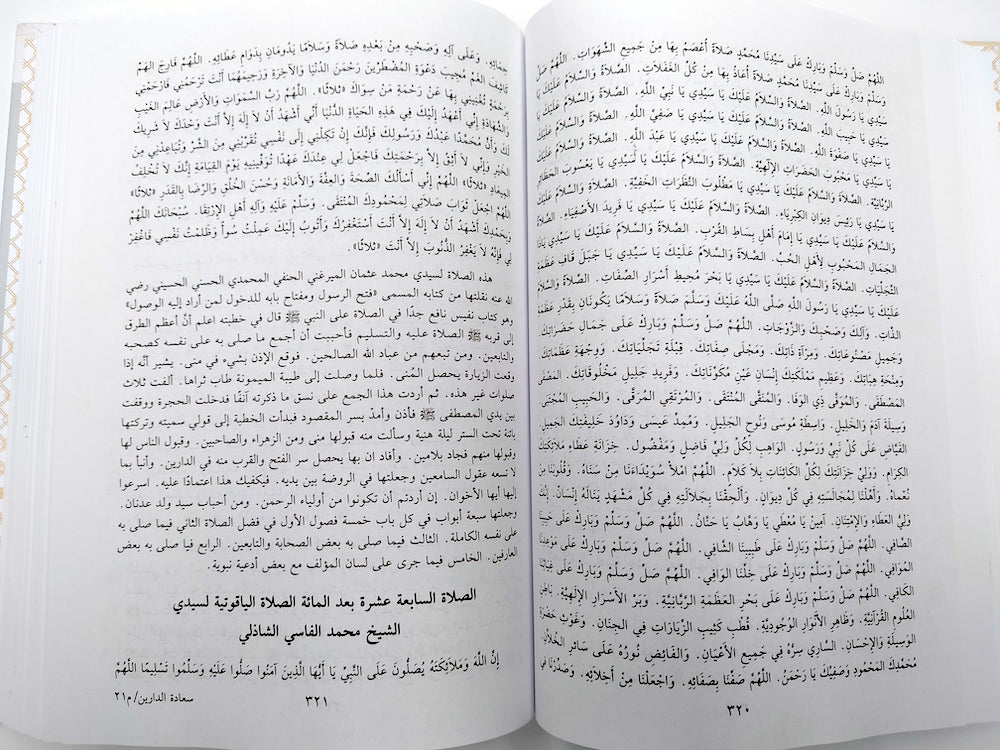 اللَّهُمَّ صَلِّ وَسَلِّمْ وَبَارِكْ عَلَى سَيِّدِنَا مُحَمَّدٍ صَلاَةً أُعْصَمُ بِهَا مِنْ جَمِيعِ الشَّهَوَاتِ. اللَّهُمَّ صَلِّ
وَسَلِّمْ وَبَارِكْ عَلَى سَيِّدِنَا مُحَمَّدٍ صَلاَةً أُعَاذُ بِهَا مِنْ كُلِّ الْغَفَلاَتِ. الصَّلاَةُ وَالسَّلاَمُ عَلَيْكَ يَا
سَيِّدِي يَا رَسُولَ اللَّهِ. الصَّلاَةُ وَالسَّلاَمُ عَلَيْكَ يَا سَيِّدِي يَا نَبِيَّ اللَّهِ. الصَّلاَةُ وَالسَّلاَمُ عَلَيْكَ يَا
سَيِّدِي يَا حَبِيبَ اللَّهِ. الصَّلاَةُ وَالسَّلاَمُ عَلَيْكَ يَا سَيِّدِي يَا صَفِيَّ اللَّهِ. الصَّلاَةُ وَالسَّلاَمُ عَلَيْكَ يَا سَيِّدِي
يَا صَفْوَةَ اللَّهِ. الصَّلاَةُ وَالسَّلاَمُ عَلَيْكَ يَا سَيِّدِي يَا عَبْدَ اللَّهِ. الصَّلاَةُ وَالسَّلاَمُ عَلَيْكَ
يَا سَيِّدِي يَا مَحْبُوبَ الْحَضَرَاتِ الإِلَهِيَّةِ. الصَّلاَةُ وَالسَّلاَمُ عَلَيْكَ يَا سَيِّدِي يَا يَعْسُوبَ
الرَّبَّانِيَّةِ. الصَّلاَةُ وَالسَّلاَمُ عَلَيْكَ يَا سَيِّدِي يَا مَطْلُوبَ النَّظَرَاتِ الْخَفِيَّةِ. الصَّلاَةُ وَالسَّلاَمُ عَلَيْكَ
يَا سَيِّدِي يَا رَئِيسَ دِيوَانِ الْكِبْرِيَاءِ. الصَّلاَةُ وَالسَّلاَمُ عَلَيْكَ يَا سَيِّدِي يَا فَرِيدَ الأَصْفِيَاءِ. الصَّلاَةُ
وَالسَّلاَمُ عَلَيْكَ يَا سَيِّدِي يَا إِمَامَ أَهْلِ بِسَاطِ الْقُرْبِ. الصَّلاَةُ وَالسَّلاَمُ عَلَيْكَ يَا سَيِّدِي يَاذَا
الْجَمَالِ الْمَحْبُوبِ لأَهْلِ الْحُبِّ. الصَّلاَةُ وَالسَّلاَمُ عَلَيْكَ يَا سَيِّدِي يَا جَبَلَ قَافِ عَظَمَةِ
التَّجَلِّيَاتِ. الصَّلاَةُ وَالسَّلاَمُ عَلَيْكَ يَا سَيِّدِي يَا بَحْرَ مُحِيطِ أَسْرَارِ الصِّفَاتِ. الصَّلاَةُ وَالسَّلاَمُ
عَلَيْكَ يَا سَيِّدِي يَا رَسُولَ اللَّهِ صَلَّى اللَّهُ عَلَيْكَ وَسَلَّمَ صَلاَةً وَسَلاَمًا يَكُونَانِ بِقَدْرِ عَظَمَةِ
الذَّاتِ. وَآلِكَ وَصَحْبِكَ وَالزَّوْجَاتِ. اللَّهُمَّ صَلِّ وَسَلِّمْ وَبَارِكْ عَلَى جَمَالِ حَضَرَاتِكَ
وَجَمِيلِ مَصْنُوعَاتِكَ. وَمِرْآةِ ذَاتِكَ. وَمَجْلَى صِفَاتِكَ. قِبْلَةِ تَجَلِّيَاتِكَ. وَوِجْهَةِ عَظَمَاتِكَ
وَمِنْحَةِ هِبَاتِكَ. وَعَظِيمِ مَمْلَكَتِكَ إِنْسَانِ عَيْنِ مُكَوَّنَاتِكَ. وَفَرِيدِ جَلِيلِ مَخْلُوقَاتِكَ.
الْمُصْطَفَى. وَالْمُوَفَّى ذِي الْوَفَا. وَالْمُنَقَّى الْمُنْتَقَى. وَالْمُرْتَقِي الْمُرَقَّى. وَالْحَبِيبِ الْمُجْتَبَى
وَسِيلَةِ آدَمَ وَالْخَلِيلِ. وَاسِطَةِ مُوسَى وَنُوحِ الْجَلِيلِ. وَمُمِدِّ عِيسَى وَدَاوُدَ خَلِيفَتِكَ الْجَمِيلِ
الْفَيَّاضِ عَلَى كُلِّ نَبِيٍّ وَرَسُولٍ. الْوَاهِبِ لِكُلِّ وَلِيٍّ فَاضِلٍ وَمَفْضُولٍ. خِزَانَةِ عَطَاءِ مَلاَئِكَتِكَ
الْكِرَامِ. وَوَلِيِّ خِزَانَتِكَ لِكُلِّ الْكَائِنَاتِ بِلاَ كَلاَمٍ. اللَّهُمَّ امْلأْ سُوَيْدَاءَنَا مِنْ سَنَاهُ. وَقُلُوبَنَا مِنْ
نُعْمَاهُ. وَأَهِّلْنَا لِمُجَالَسَتِهِ فِي كُلِّ دِيوَانٍ. وَأَلْحِقْنَا بِجَلاَلَتِهِ فِي كُلِّ مَشْهَدٍ يَنَالُهُ إِنْسَانٌ. إِنَّكَ
وَلِيُّ الْعَطَاءِ وَالاِمْتِنَانِ. آمِينَ يَا مُعْطِي يَا وَهَّابُ يَا حَنَّانُ. اللَّهُمَّ صَلِّ وَسَلِّمْ وَبَارِكْ عَلَى حَبِيبِنَا
الصَّافِي. اللَّهُمَّ صَلِّ وَسَلِّمْ وَبَارِكْ عَلَى طَبِيبِنَا الشَّافِي. اللَّهُمَّ صَلِّ وَسَلِّمْ وَبَارِكْ عَلَى
الْمُوَافِي. اللَّهُمَّ صَلِّ وَسَلِّمْ وَبَارِكْ عَلَى خِلِّنَا الْوَافِي. اللَّهُمَّ صَلِّ وَسَلِّمْ وَبَارِكْ عَلَى
الْكَافِي. اللَّهُمَّ صَلِّ وَسَلِّمْ وَبَارِكْ عَلَى بَحْرِ الْعَظَمَةِ الرَّبَّانِيَّةِ. وَبَرِّ الأَسْرَارِ الإِلَهِيَّةِ. بَاطِنِ
الْعُلُومِ الْقُرْآنِيَّةِ. وَظَاهِرِ الأَنْوَارِ الْوُجُودِيَّةِ. قُطْبِ كَثِيبِ الزِّيَارَاتِ فِي الْجِنَانِ. وَغَوْثِ حَضْرَةِ
الْوَسِيلَةِ وَالإِحْسَانِ. السَّارِي سِرُّهُ فِي جَمِيعِ الأَعْيَانِ. وَالْفَائِضِ نُورُهُ عَلَى سَائِرِ الْخُلاَّنِ.
مُحَمَّدِكَ الْمَحْمُودِ وَصَفِيِّكَ يَا رَحْمَنُ. اللَّهُمَّ صِفْنَا بِصَفَائِهِ. وَاجْعَلْنَا مِنْ أَخِلاَّئِهِ. وَصَدِّرْنَا فِي
٣٢٠
حِمَائِهِ. وَعَلَى آلِهِ وَصَحْبِهِ مِنْ بَعْدِهِ صَلاَةً وَسَلاَمًا يَدُومَانِ بِدَوَامِ عَطَائِهِ. اللَّهُمَّ فَارِجَ الْهَمِّ
كَاشِفَ الْغَمِّ مُجِيبَ دَعْوَةِ الْمُضْطَرِّينَ رَحْمَنَ الدُّنْيَا وَالآخِرَةِ وَرَحِيمَهُمَا أَنْتَ تَرْحَمُنِي فَارْحَمْنِي
بِرَحْمَةٍ تُغْنِينِي بِهَا عَنْ رَحْمَةِ مَنْ سِوَاكَ «ثَلاَثًا». اللَّهُمَّ رَبَّ السَّمَوَاتِ وَالأَرْضِ عَالِمَ الْغَيْبِ
وَالشَّهَادَةِ إِنِّي أَعْهَدُ إِلَيْكَ فِي هَذِهِ الْحَيَاةِ الدُّنْيَا أَنِّي أَشْهَدُ أَنْ لاَ إِلَهَ إِلاَّ أَنْتَ وَحْدَكَ لاَ شَرِيكَ
لَكَ وَأَنَّ مُحَمَّدًا عَبْدُكَ وَرَسُولُكَ فَإِنَّكَ إِنْ تَكِلْنِي إِلَى نَفْسِي تُقَرِّبْنِي مِنَ الشَّرِّ وَتُبَاعِدْنِي مِنَ
الْخَيْرِ وَإِنِّي لاَ أَثِقُ إِلاَّ بِرَحْمَتِكَ فَاجْعَلْ لِي عِنْدَكَ عَهْدًا تُوَفِّينِيهِ يَوْمَ الْقِيَامَةِ إِنَّكَ لاَ تُخْلِفُ
الْمِيعَادَ «ثَلاَثًا» اللَّهُمَّ إِنِّي أَسْأَلُكَ الصِّحَّةَ وَالْعِفَّةَ وَالأَمَانَةَ وَحُسْنَ الْخُلُقِ وَالرِّضَا بِالْقَدَرِ «ثَلاَثًا»
اللَّهُمَّ اجْعَلْ ثَوَابَ صَلاَتِي لِمَحْمُودِكَ الْمُنْتَقَى. وَسَلِّمْ عَلَيْهِ وَآلِهِ أَهْلِ الاِرْتِقَا. سُبْحَانَكَ اللَّهُمَّ
وَبِحَمْدِكَ أَشْهَدُ أَنْ لاَ إِلَهَ إِلاَّ أَنْتَ أَسْتَغْفِرُكَ وَأَتُوبُ إِلَيْكَ عَمِلْتُ سُوأً وَظَلَمْتُ نَفْسِي فَاغْفِرْ
لِي فَإِنَّهُ لاَ يَغْفِرُ الذُّنُوبَ إِلاَّ أَنْتَ «ثَلاَثًا».
هذه الصلاة لسيدي محمد عثمان الميرغني الحنفي المحمدي الحسني الحسيني رضي
الله عنه نقلتها من كتابه المسمى «فتح الرسول ومفتاح بابه للدخول لمن أراد إليه الوصول»
وهو كتاب نفيس نافع جدًا في الصلاة على النبي ﷺ قال في خطبته اعلم أنَّ أعظم الطرق
إلى قربه ﷺ الصلاة عليه والتسليم فأحببت أن أجمع ما صلى به على نفسه كصحبه
والتابعين. ومن تبعهم من عباد الله الصالحين. فوقع الإذن بشيء في منى. يشير أنَّه إذا
وقعت الزيارة يحصل المُنى. فلما وصلت إلى طيبة الميمونة طاب ثراها. ألفت ثلاث
صلوات غير هذه. ثم أردت هذا الجمع على نسق ما ذكرته آنفًا فدخلت الحجرة ووقفت
بين يدي المصطفى ﷺ فأذن وأمدَّ بسر المقصود فبدأت الخطبة إلى قولي سميته وتركتها
بائتة تحت الستر ليلة هنية وسألت منه قبولها منى ومن الزهراء والصاحبين. وقبول الناس لها
وقبولها منهم فجاد بلامين. وأفاد ان بها يحصل سر الفتح والقرب منه في الدارين. وأنبأ بما
لا تسعه عقول السامعين وجعلتها في الروضة بين يديه. فيكفيك هذا اعتمادًا عليه. اسرعوا
إليها أيها الأخوان. إن أردتم أن تكونوا من أولياء الرحمن. ومن أحباب سيد ولد عدنان.
وجعلتها سبعة أبواب في كل باب خمسة فصول الأول في فضل الصلاة الثاني فيما صلى به
على نفسه الكاملة. الثالث فيما صلى به بعض الصحابة والتابعين. الرابع فيا صلى به بعض
العارفين. الخامس فيما جرى على لسان المؤلف مع بعض أدعية نبوية.
الصلاة السابعة عشرة بعد المائة الصلاة الياقوتية لسيدي
الشيخ محمد الفاسي الشاذلي
إِنَّ اللَّهَ وَمَلاَئِكَتَهُ يُصَلُّونَ عَلَى النَّبِيِّ يَا أَيُّهَا الَّذِينَ آمَنُوا صَلُّوا عَلَيْهِ وَسَلِّمُوا تَسْلِيمًا اللَّهُمَّ
٣٢١
سعادة الدارين/ م٢١